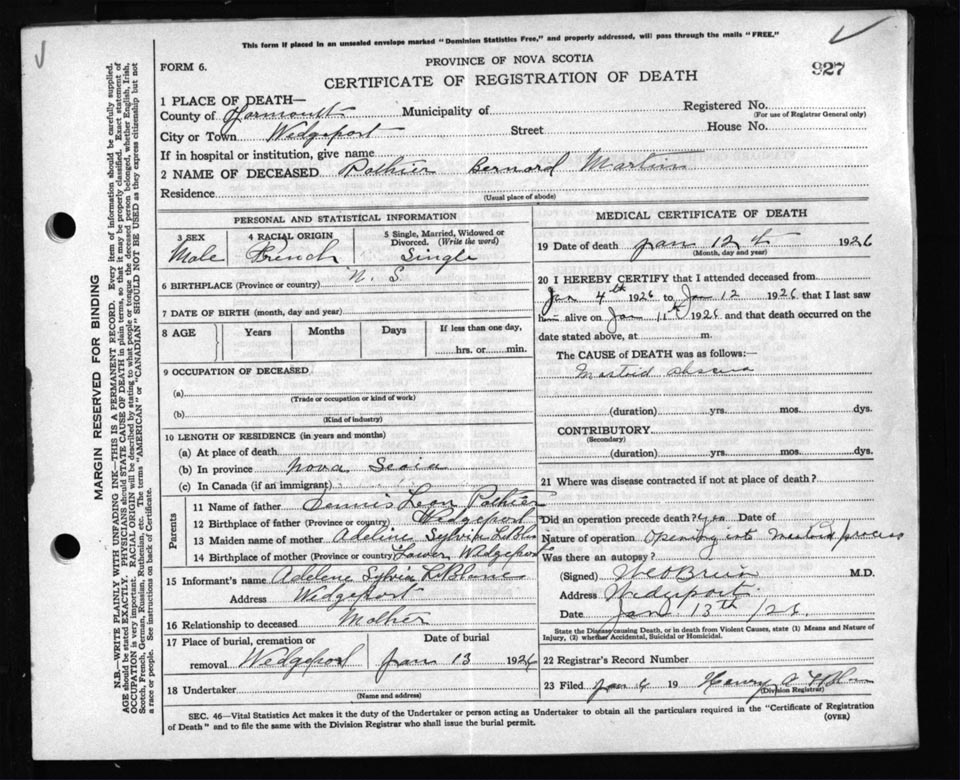 This form if placed in an unsealed envelope marked "Dominion Statistics Free," and properly addressed, will pass through the mails "FREE."
PROVINCE OF NOVA SCOTIA
FORM 6.
CERTIFICATE OF REGISTRATION OF DEATH
927
MARGIN RESERVED FOR BINDING
N.B.—WRITE PLAINLY WITH UNFADING INK—THIS IS A PERMANENT RECORD. Every item of information should be carefully supplied.
AGE should be stated EXACTLY. PHYSICIANS should STATE CAUSE OF DEATH in plain terms, so that it may be properly classified. Exact statement of
OCCUPATION is very important. RACIAL ORIGIN will be described by stating to what people or tongue the deceased person belonged, whether English, Irish,
Scotch, French, German, Russian, Ruthenian, etc. The terms "AMERICAN" or "CANADIAN" SHOULD NOT BE USED as they express citizenship but not
a race or people. See instructions on back of Certificate.
1 PLACE OF DEATH—
County of Yarmouth Municipality of Registered No.
(For use of Registrar General only)
City or Town Wedgeport Street House No.
If in hospital or institution, give name
2 NAME OF DECEASED Pothier Bernard Martin
Residence
(Usual place of abode)
PERSONAL AND STATISTICAL INFORMATION
3 SEX Male
4 RACIAL ORIGIN French
5 Single, Married, Widowed or Divorced. (Write the word) Single
6 BIRTHPLACE (Province or country) N. S.
7 DATE OF BIRTH (month, day and year)
8 AGE Years Months Days If less than one day,
hrs. or min.
9 OCCUPATION OF DECEASED
(a)
(Trade or occupation or kind of work)
(b)
(Kind of industry)
10 LENGTH OF RESIDENCE (in years and months)
(a) At place of death
(b) In province Nova Scoia
(c) In Canada (if an immigrant)
Parents
11 Name of father Dennis Leon Pothier
12 Birthplace of father (Province or country) Wedgeport
13 Maiden name of mother Adeline Sylvia LeBlanc
14 Birthplace of mother (Province or country) Lower Wedgeport
15 Informant's name Adelene Sylvia LeBlanc
Address Wedgeport
16 Relationship to deceased Mother
17 Place of burial, cremation or Date of burial
removal Wedgeport Jan 13 1926
18 Undertaker
(Name and address)
MEDICAL CERTIFICATE OF DEATH
19 Date of death Jan 12th 1926
(Month, day and year)
20 I HEREBY CERTIFY that I attended deceased from
Jan 4th 1926 to Jan 12 1926 that I last saw
him alive on Jan 11th 1926 and that death occurred on the
date stated above, at m.
The CAUSE of DEATH was as follows:—
Mastoid abscess
(duration) yrs. mos. dys.
CONTRIBUTORY
(Secondary)
(duration) yrs. mos. dys.
21 Where was disease contracted if not at place of death?
Did an operation precede death? yes Date of
Nature of operation Opening into Mastoid process
Was there an autopsy?
(Signed) M.D.
Address Wedgeport
Date Jan 13th /26.
State the Disease causing Death, or in death from Violent Causes, state (1) Means and Nature of
Injury, (2) whether Accidental, Suicidal or Homicidal.
22 Registrar's Record Number
23 Filed Jan 19 Henry
(Division Registrar)
SEC. 46—Vital Statistics Act makes it the duty of the Undertaker or person acting as Undertaker to obtain all the particulars required in the "Certificate of Registration
of Death" and to file the same with the Division Registrar who shall issue the burial permit.
(OVER)